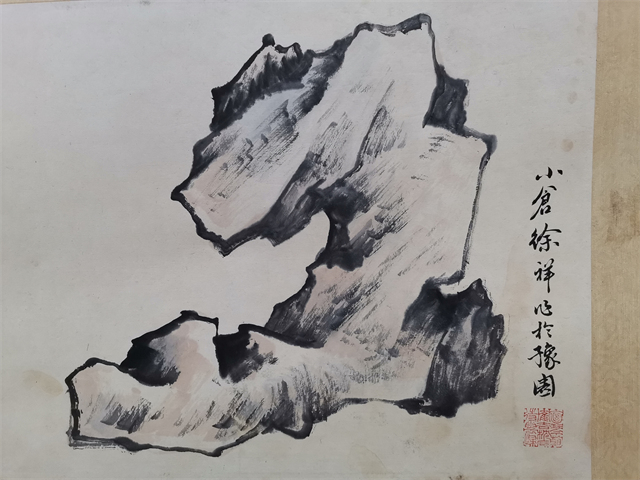 小倉徐祥作於豫園